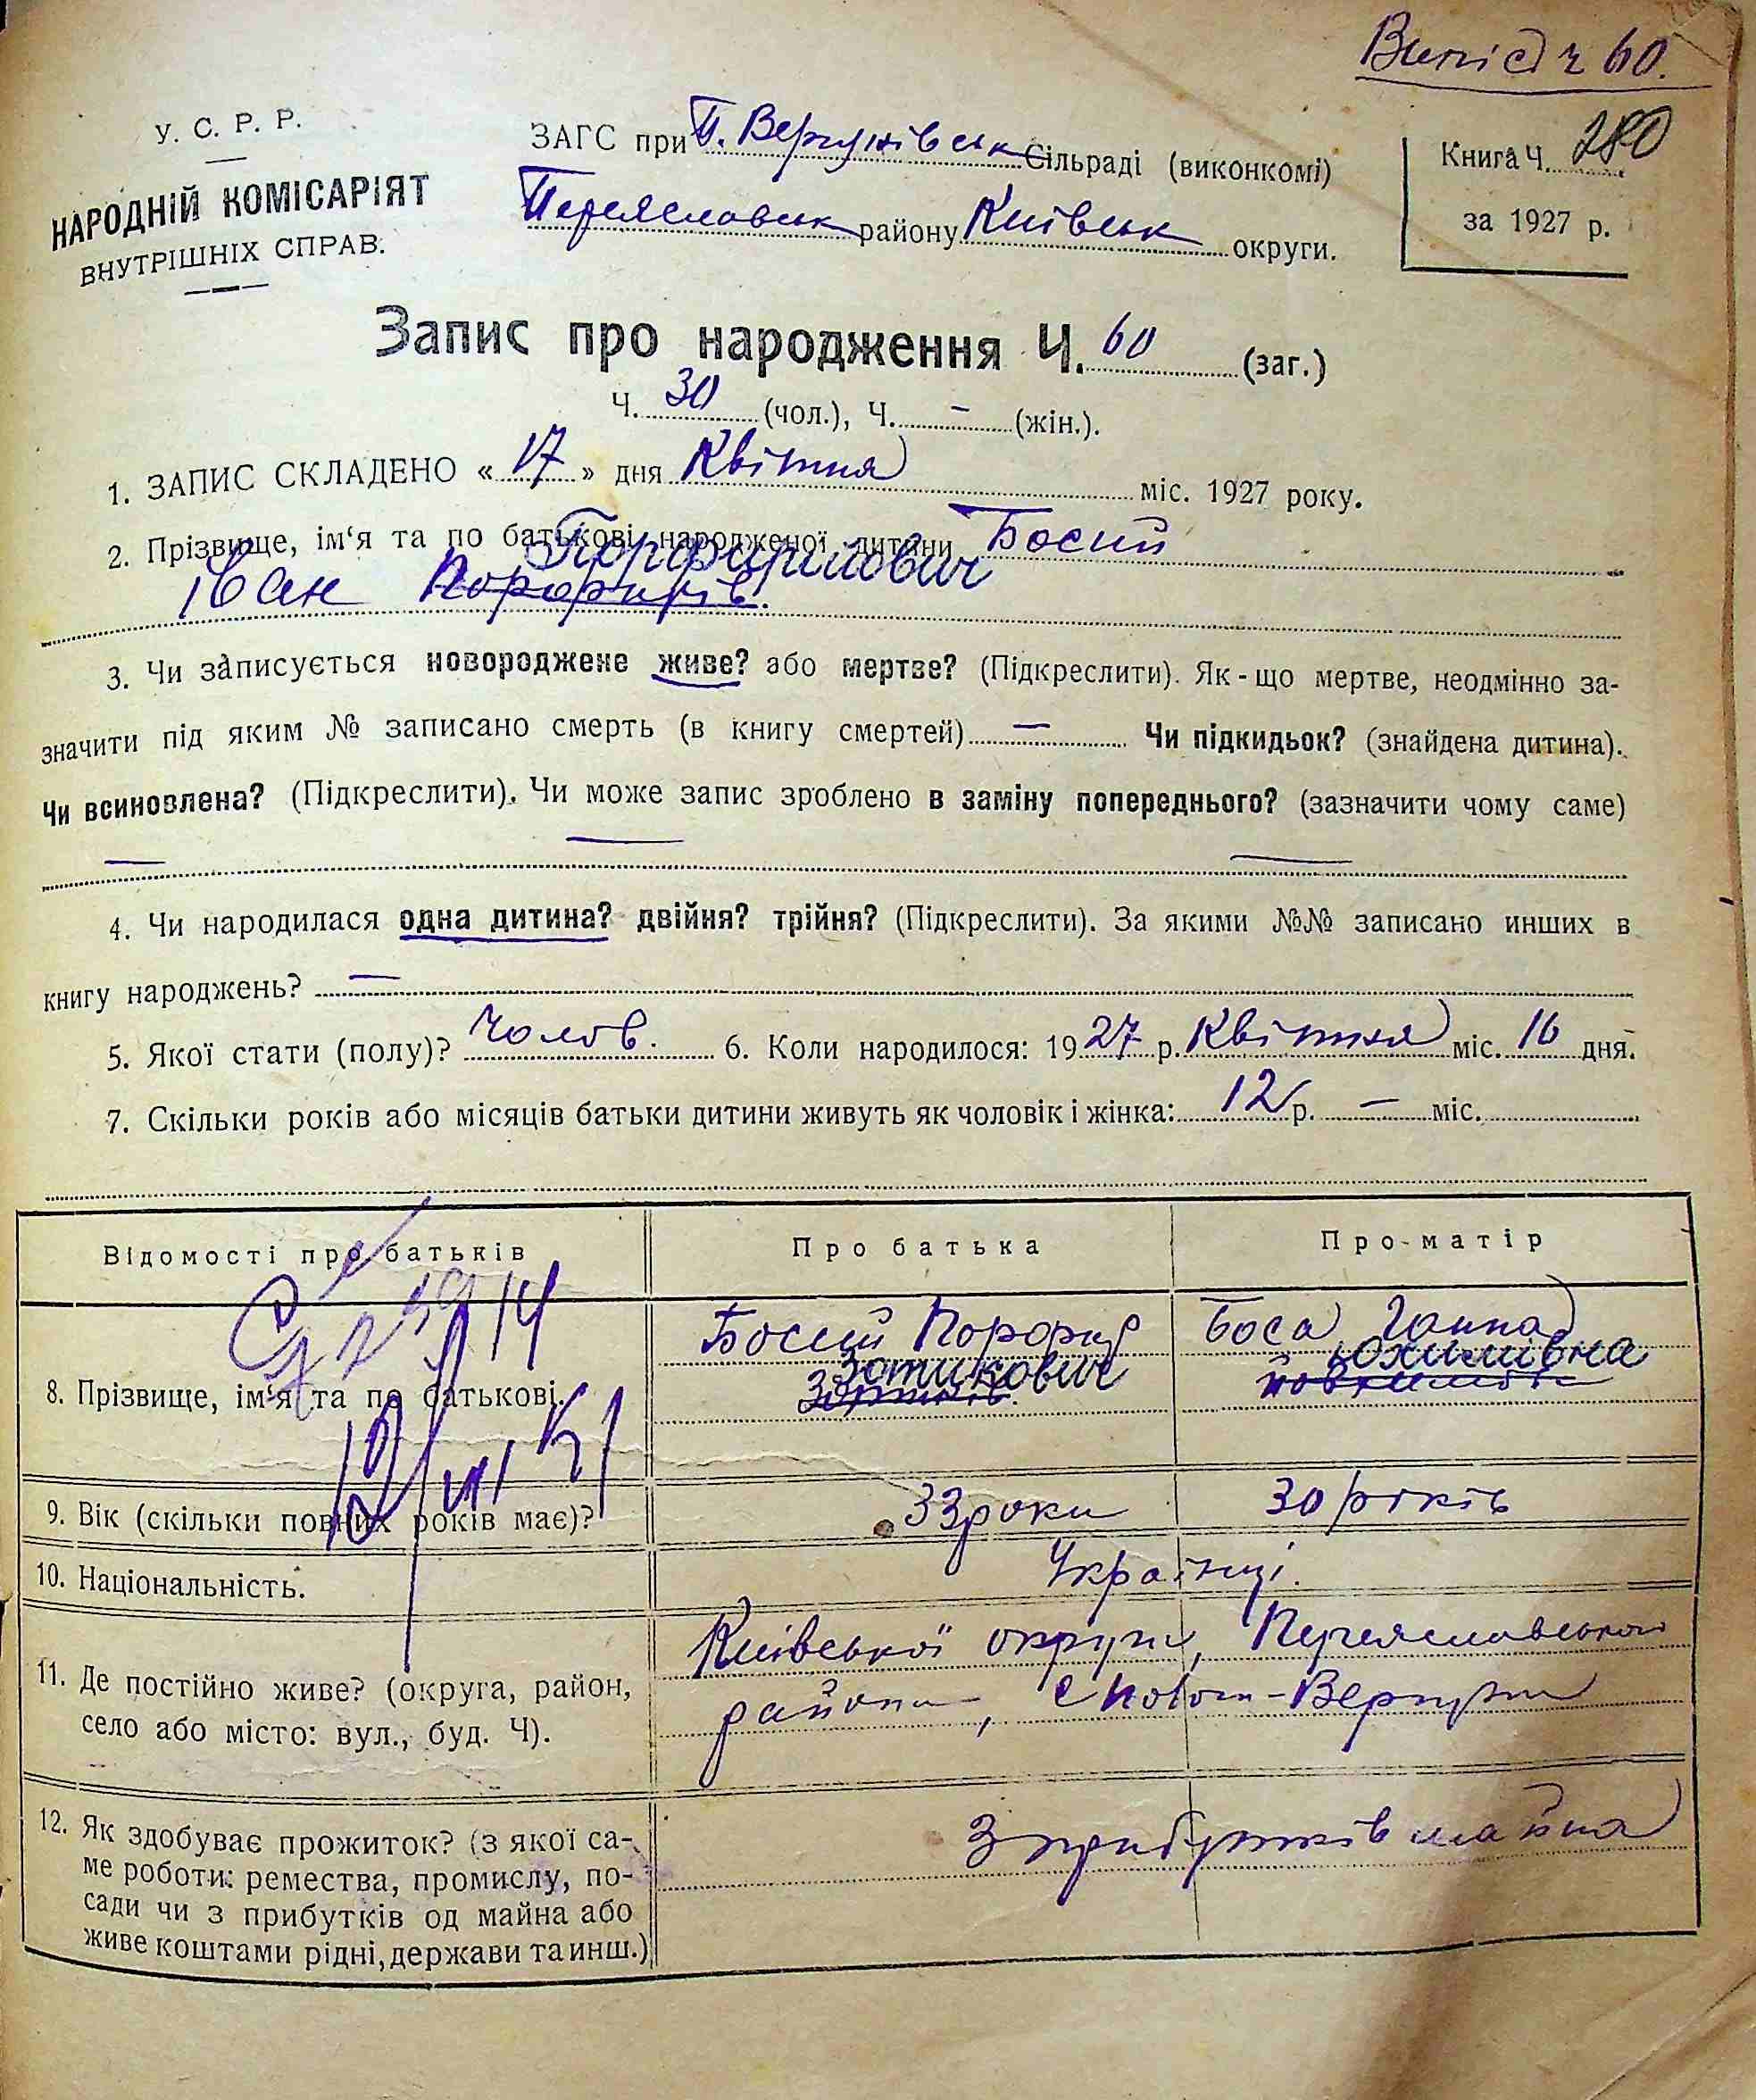 Випіс ч 60.
У. С. Р. Р.
НАРОДНІЙ КОМІСАРІЯТ
ВНУТРІШНІХ СПРАВ.
ЗАГС при П. Вергунівськ Сільраді (виконкомі)
Переяславськ району Київськ округи.
Книга Ч. 280
за 1927 р.
Запис про народження Ч. 60 (заг.)
Ч. 30 (чол.), Ч. – (жін.).
1. ЗАПИС СКЛАДЕНО «17» дня Квітня міс. 1927 року.
2. Прізвище, ім‘я та по батькові народженої дитини Босий
Порфирійович
Іван Порфирів.
3. Чи записується новороджене живе? або мертве? (Підкреслити). Як-що мертве, неодмінно за-
значити під яким № записано смерть (в книгу смертей) — Чи підкидьок? (знайдена дитина).
Чи всиновлена? (Підкреслити). Чи може запис зроблено в заміну попереднього? (зазначити чому саме)
4. Чи народилася одна дитина? двійня? трійня? (Підкреслити). За якими №№ записано инших в
книгу народжень? —
5. Якої стати (полу)? Чолов. 6. Коли народилося: 1927 р. Квітня міс. 16 дня.
7. Скільки років або місяців батьки дитини живуть як чоловік і жінка: 12 р. — міс.
Відомості про батьків Про батька Про матір
8. Прізвище, ім‘я та по батькові.
Босий Порфир
Зотикович
Боса Ганна
Юхимівна
9. Вік (скільки повних років має)? 33 роки 30 років
10. Національність. Українці.
11. Де постійно живе? (округа, район,
село або місто: вул., буд. Ч).
Київської округи, Переяславського
району, с Пологи-Вергуни
12. Як здобуває прожиток? (з якої са-
ме роботи: ремества, промислу, по-
сади чи з прибутків од майна або
живе коштами рідні, держави та инш.)
З прибутків майна